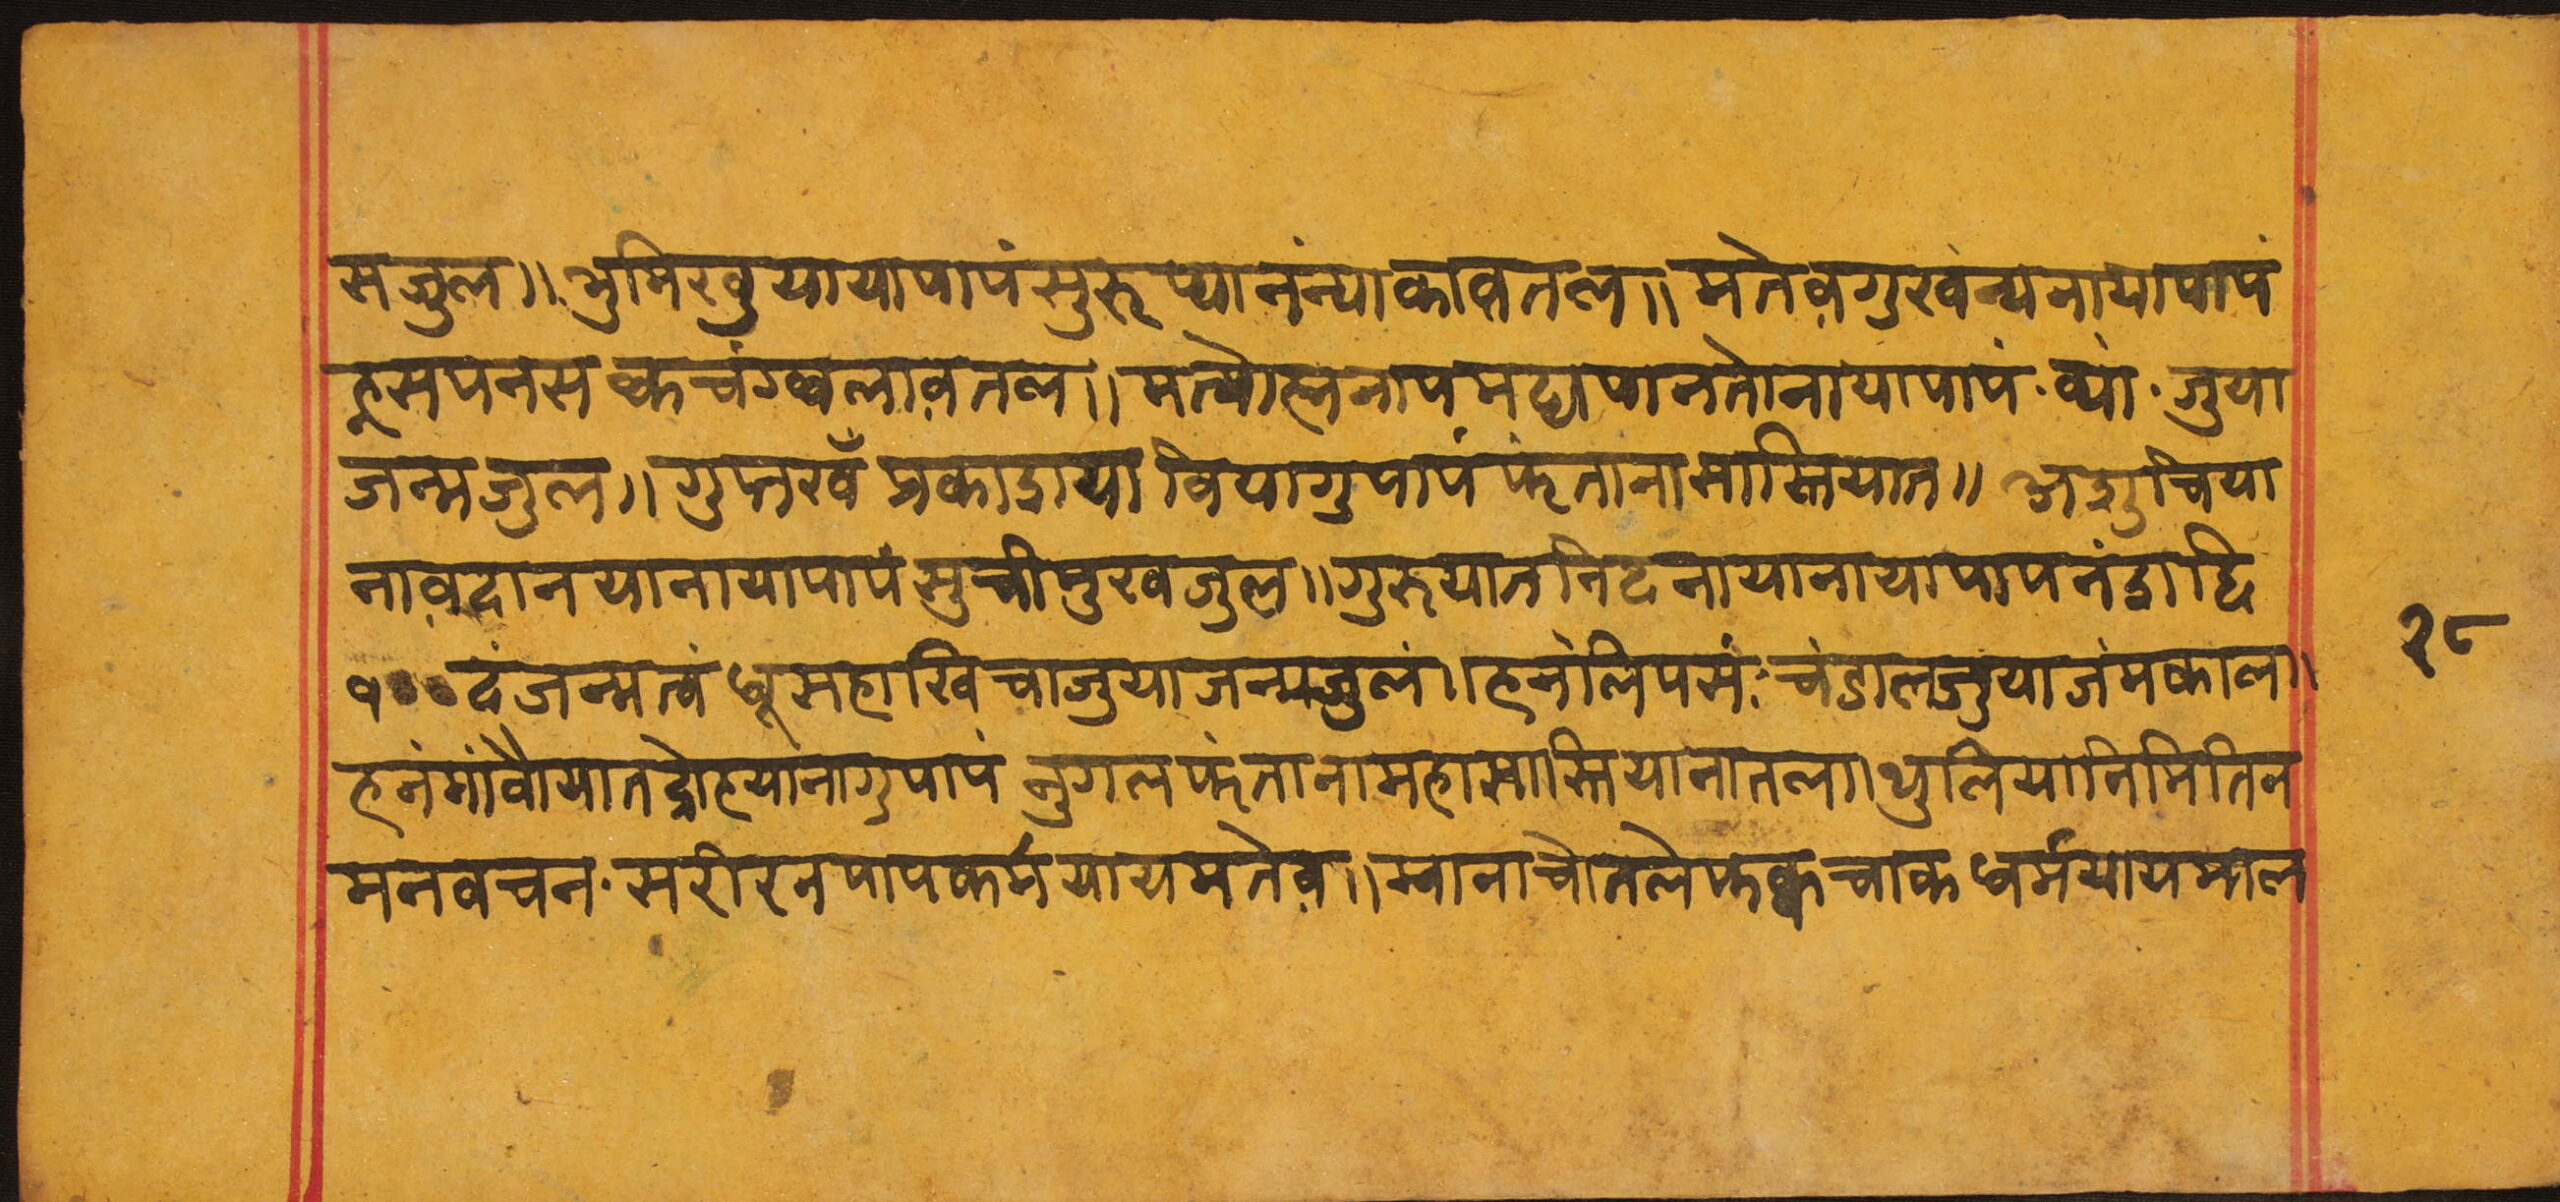 मजुल॥ भुमिखुयायापापं सुरूप्यानंन्याकावतल॥ मतेव़गुखंन्यनायापापं
ह्रसपनस कचंग्वलाव़तल॥ मत्यो ह्मनाप मद्यपानतोनायापापं · ब्यां · जुया
जन्मजुल॥ गुप्तखँ प्रकाशयाा वियागुपापं फंतानासास्तियात॥ अशुचिया
नाव़दानयानायापापं सुचीमुखजुल॥ गुरुयातनिदनायानायापापनं द्वाद्दि
१०० दं जन्मत्वं धूमहाखिचाजुयाजन्मजुलं॥ हनंलिपसं: चंडालजुयाजंमकाल॥
हनंमांवौयातद्रोहयांनागुपापं नुगलफंतानामहासास्तियानातल॥ थुलियानिमितिन
मनवचन · सरीरन पापकर्मयायमतेव़॥ म्वानाचोतलेफक्वचाकधर्मयायमाल
२८